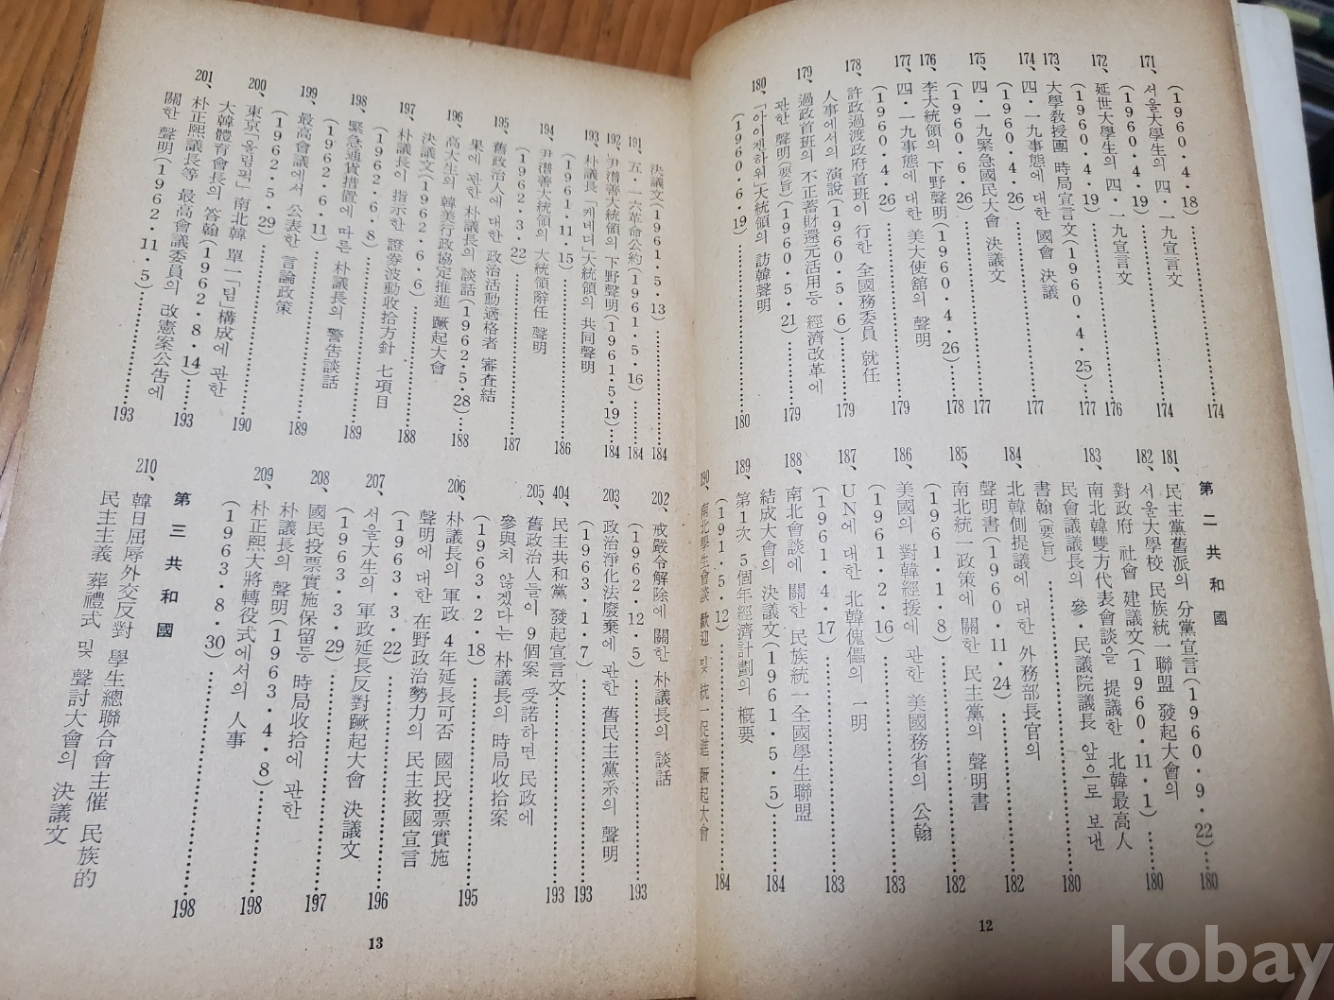 (1960·4·18)……174
171、서울大學生의 四·一九宣言文
(1960·4·19)……174
172、延世大學生의 四·一九宣言文
(1960·4·19)……176
173、大學敎授團 時局宣言文(1960·4·25)……177
174、四·一九事態에 대한 國會 決議
(1960·4·26)……177
175、四·一九緊急國民大會 決議文
(1960·6·26)……177
176、李大統領의 下野聲明(1960·4·26)……178
177、四·一九事態에 대한 美大使館의 聲明
(1960·4·26)……179
178、許政過渡政府首班이 行한 全國務委員 就任
人事에서의 演說(1960·5·6)……179
179、過政首班의 不正蓄財還元活用等 經濟改革에
관한 聲明(要旨)(1960·5·21)……179
180、「아이젠하워」大統領의 訪韓聲明
(1960·6·19)……180
第二共和國
181、民主黨舊派의 分黨宣言(1960·9·22)……180
182、서울大學校 民族統一聯盟 發起大會의
對政府 社會 建議文(1960·11·1)……180
183、南北韓雙方代表會談을 提議한 北韓最高人
民會議議長의 參·民議院議長 앞으로 보낸
書翰(要旨)……180
184、北韓側提議에 대한 外務部長官의
聲明書(1960·11·24)……182
185、南北統一政策에 關한 民主黨의 聲明書
(1961·1·8)……182
186、美國의 對韓經援에 관한 美國務省의 公翰
(1961·2·16)……183
187、UN에 대한 北韓傀儡의 一明
(1961·4·17)……183
188、南北會談에 關한 民族統一全國學生聯盟
結成大會의 決議文(1961·5·5)……184
189、第1次 5個年經濟計劃의 槪要
(1991·5·12)……184
190、南北學生會談 歡迎 및 統一促進 蹶起大會
12
決議文(1961·5·13)……184
191、五·一六革命公約(1961·5·16)……184
192、尹潽善大統領의 下野聲明(1961·5·19)……184
193、朴議長「케네디」大統領의 共同聲明
(1961·11·15)……186
194、尹潽善大統領의 大統領辭任 聲明
(1962·3·22)……187
195、舊政治人에 대한 政治活動適格者 審査結
果에 관한 朴議長의 談話(1962·5·28)……188
196、高大生의 韓美行政協定推進 蹶起大會
決議文(1962·6·6)……188
197、朴議長이 指示한 證券波動收拾方針 七項目
(1962·6·8)……189
198、緊急通貨措置에 따른 朴議長의 警告談話
(1962·6·11)……189
199、最高會議에서 公表한 言論政策
(1962·5·29)……190
200、東京「올림픽」南北韓 單一「팀」構成에 관한
大韓體育會長의 答翰(1962·8·14)……193
201、朴正熙議長等 最高會議委員의 改憲案公告에
關한 聲明(1962·11·5)……193
202、戒嚴令解除에 關한 朴議長의 談話
(1962·12·5)……193
203、政治淨化法廢棄에 관한 舊民主黨系의 聲明
(1963·1·7)……193
404、民主共和黨 發起宣言文……193
205、舊政治人들이 9個案 受諾하면 民政에
參與치 않겠다는 朴議長의 時局收拾案
(1963·2·18)……195
206、朴議長의 軍政 4年延長可否 國民投票實施
聲明에 대한 在野政治勢力의 民主救國宣言
(1963·3·22)……196
207、서울大生의 軍政延長反對蹶起大會 決議文
(1963·3·29)……197
208、國民投票實施保留등 時局收拾에 관한
朴議長의 聲明(1963·4·8)……198
209、朴正熙大將轉役式에서의 人事
(1963·8·30)……198
第三共和國
210、韓日屈辱外交反對 學生總聯合會主催 民族的
民主主義 葬禮式 및 聲討大會의 決議文
13
kobay